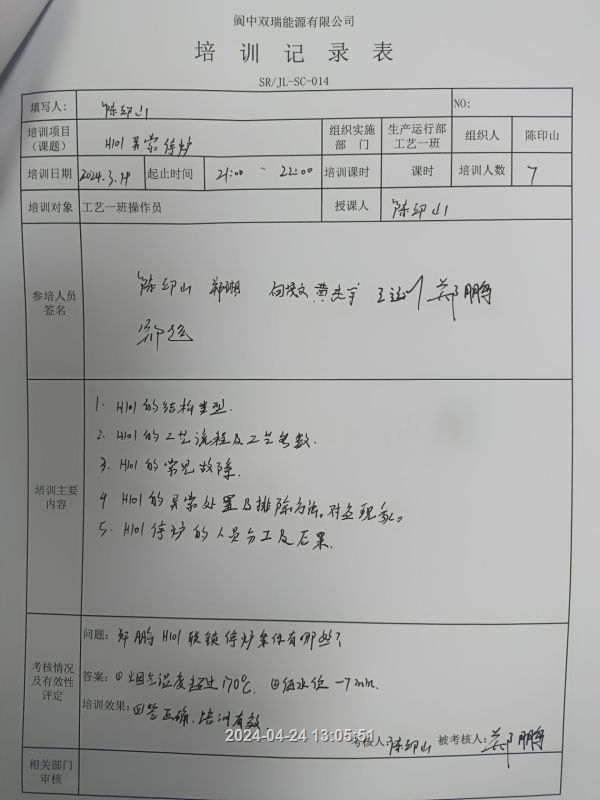 阆中双瑞能源有限公司
培训记录表
SR/JL-SC-014
填写人: 陈印山 NO:
培训项目(课题) H101异常停炉 组织实施部门 生产运行部工艺一班 组织人 陈印山
培训日期 2024.3.19 起止时间 21:00 ~ 22:00 培训课时 课时 培训人数 7
培训对象 工艺一班操作员 授课人 陈印山
参培人员签名 陈印山 郑湘 黄杰宇 郑鹏
培训主要内容
1. H101的结构类型.
2. H101的工艺流程及工艺参数.
3. H101的常见故障.
4 H101的异常处置及排除方法。对应现象。
5. H101停炉的人员分工及后果.
考核情况及有效性评定
问题: 郑鹏 H101联锁停炉条件有哪些?
答案: ①烟气温度超过170℃. ②低水位 -7mm.
培训效果: 回答正确.培训有效
2024-04-24 13:05:51
考核人: 陈印山 被考核人: 郑鹏
相关部门审核